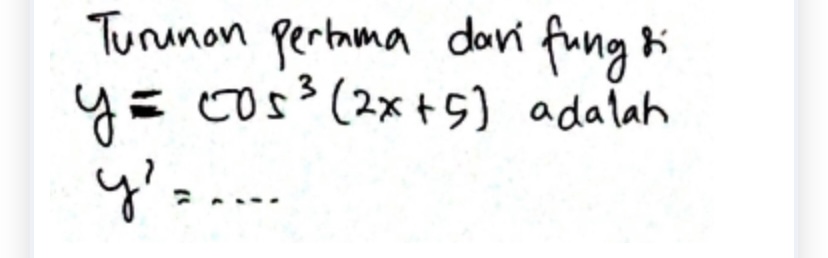 Turunan pertama dari fungsi
y = cos³ (2x + 5) adalah
y' = ....